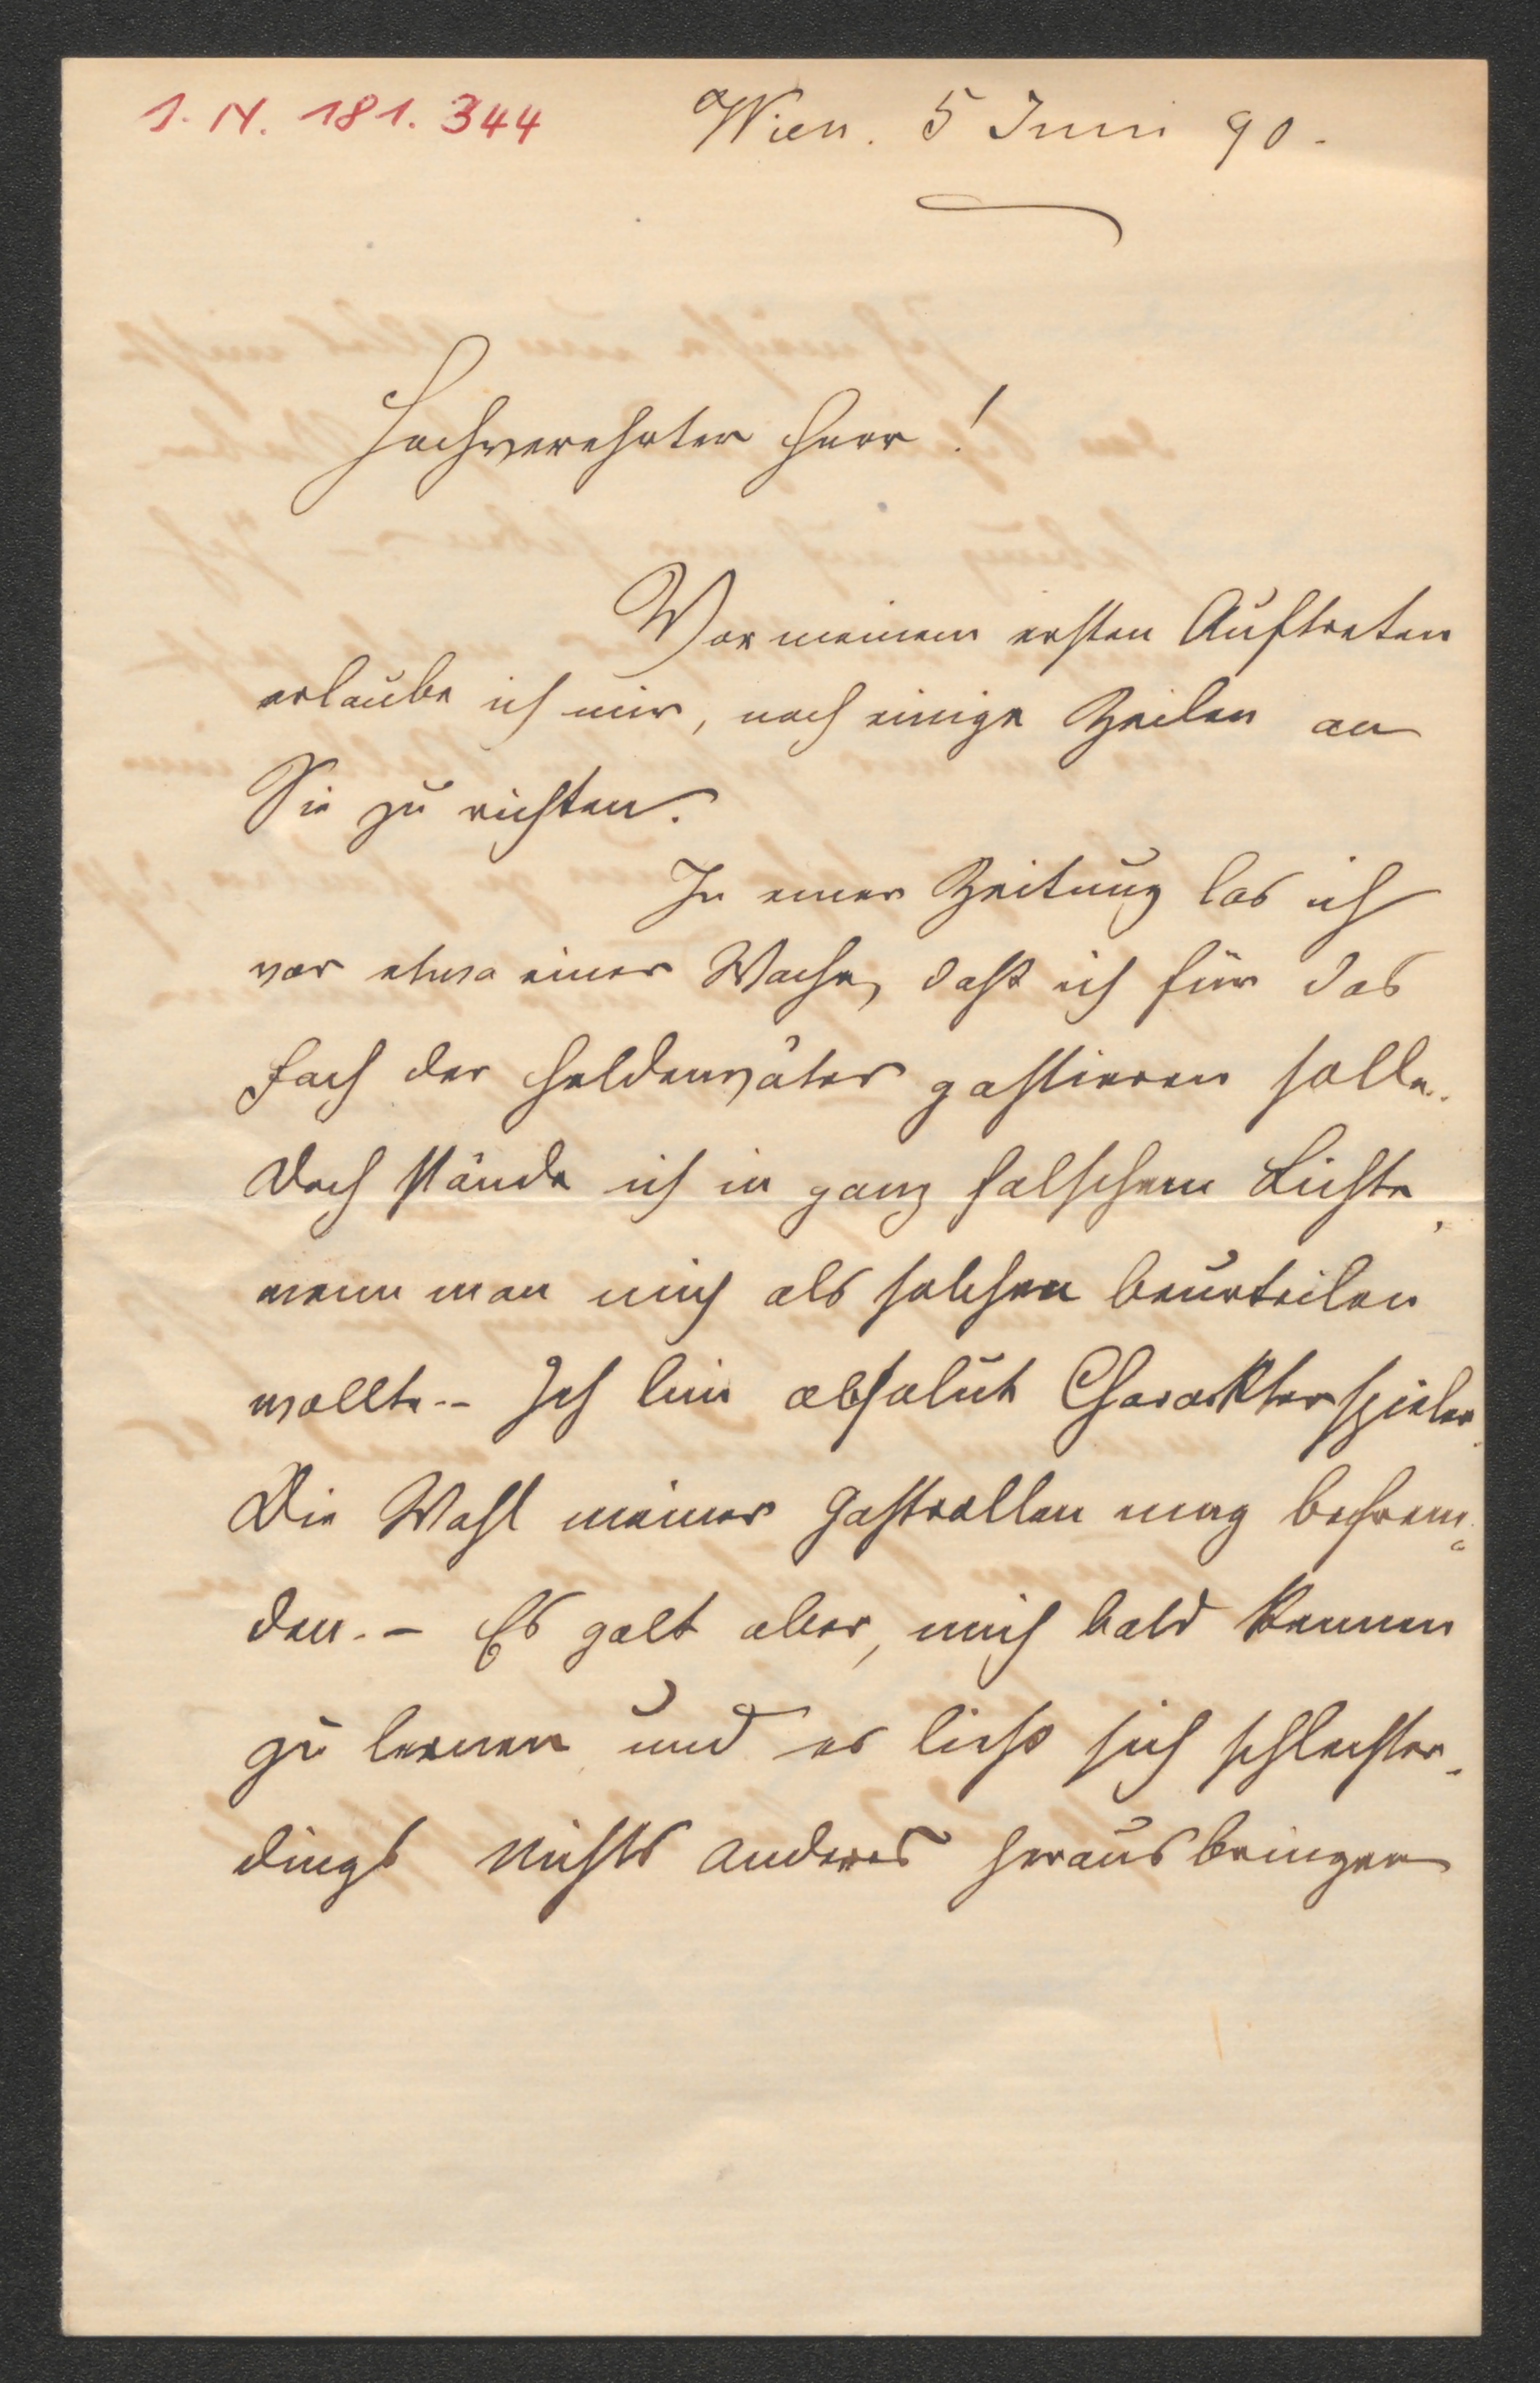 I. N. 181.344
Wien. 5 Juni 90.
Hochverehrter Herr!
Vor meinem ersten Auftreten
erlaube ich mir, noch einige Zeilen an
Sie zu richten.
In einer Zeitung las ich
vor etwa einer Woche, daß ich für das
Fach der Heldenväter gastieren solle.
Doch stände ich in ganz falschem Lichte,
wenn man mich als solchen beurteilen
wollte.- Ich bin absolut Charakterspieler.
Die Wahl meiner Gastrollen mag befrem-
den.- Es galt aber, mich bald kennen
zu lernen und es ließ sich schlechter-
dings nichts anderes herausbringen